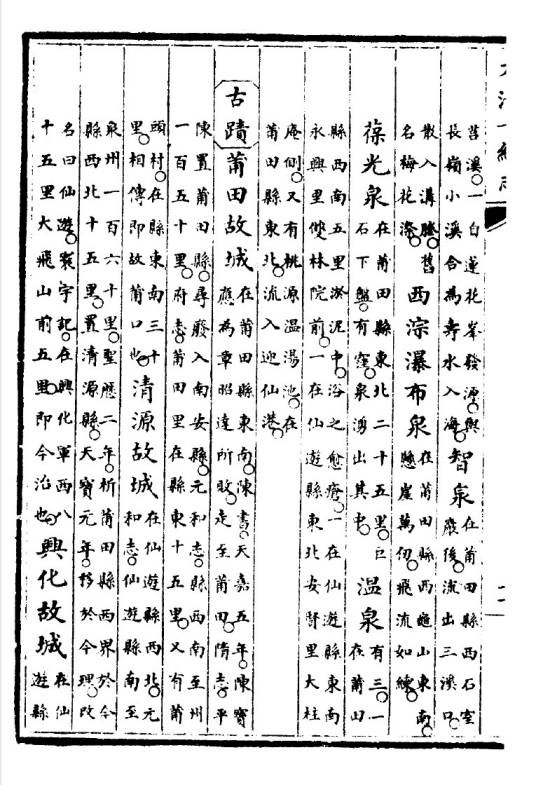 莒溪一白蓮花峯發源與
長嶺小溪合為壽水入海
智泉
在莆田縣西石室
巖後流出三溪口
散入溝塍舊
名梅花漈
西淙瀑布泉
在莆田縣西龜山東南
懸崖萬仞飛流如練
葆光泉
在莆田縣東北二十五里巨
石下盤有窪泉湧出其中
溫泉
有三一
在莆田
縣西南五里淤泥中浴之愈瘡一在仙遊縣東南
永興里雙林院前一在仙遊縣東北安賢里大柱
庵側又有桃源溫湯池在
莆田縣東北流入迎仙港
古蹟
莆田故城
在莆田縣東南陳書天嘉五年陳寶
應為章昭達所敗走至莆田隋志平
陳置莆田縣尋廢入南安縣元和志縣西南至州
一百五十里府志莆田里在縣東十五里又有莆
頭村在縣東南三十
里相傳即故莆口也
清源故城
在仙遊縣西北元
和志仙遊縣南至
泉州一百六十里聖應二年析莆田縣西界於今
縣西北十五里置清源縣天寶元年移於今理改
名曰仙遊寰宇記在興化軍西八
十五里大飛山前五里即今治也
興化故城
在仙
遊縣